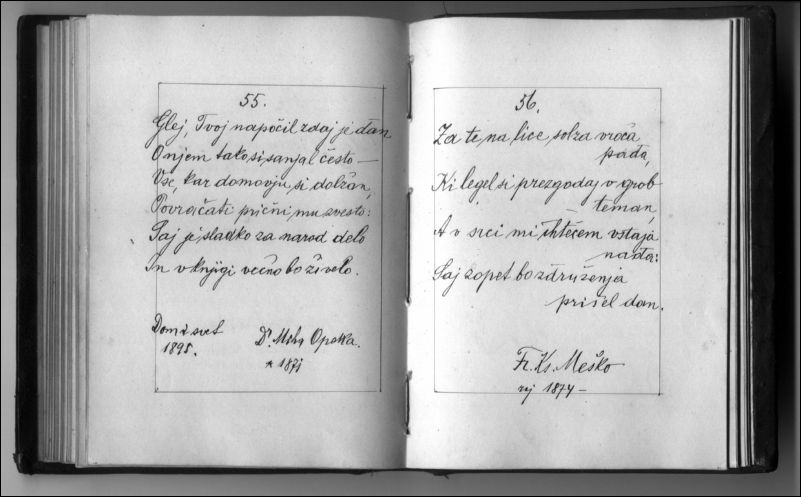 55.
Glej, Tvoj napočil zdaj je dan
O njem tako si sanjal često —
Vse, kar domovju si dolžan,
Povračati prični mu zvesto:
Saj je sladko za narod delo
In v knjigi večno bo živelo.
Dom i svet
1895.
Dr. Miha Opeka.
* 1871
56.
Za te na lice solza vroča
pada,
Ki legel si prezgodaj v grob
teman,
A v srci mi trhtečem vstaja
nada:
Saj zopet bo združenja
prišel dan.
Fr. Ks. Meško
roj 1874 —